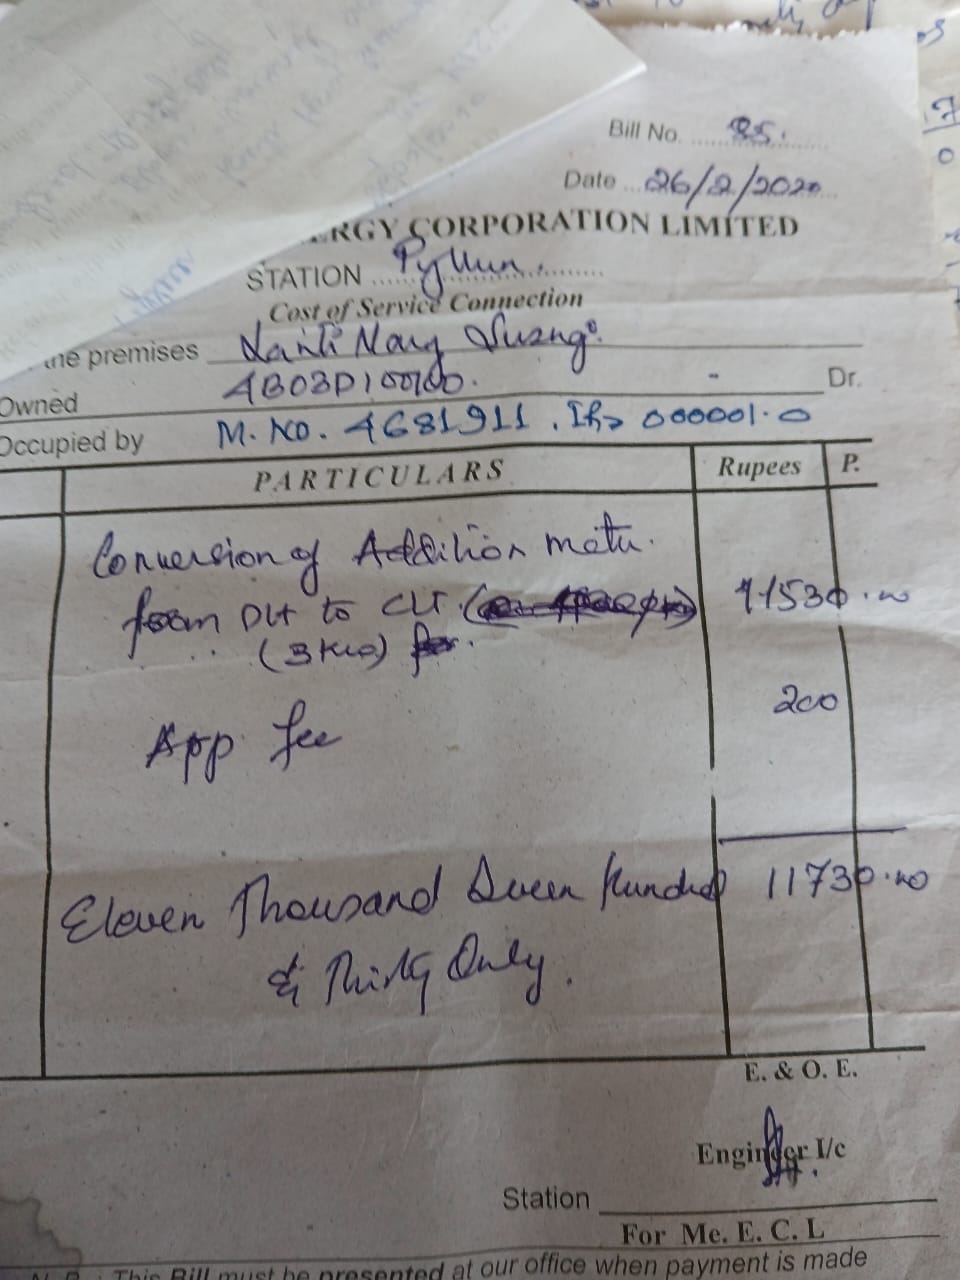 Bill No. 85.
Date 26/2/2020
ERGY CORPORATION LIMITED
STATION Pyllun.
Cost of Service Connection
the premises
Owned 4B03P100100. - Dr.
Occupied by M. No. 4681911. IR> 000001.0
PARTICULARS Rupees P.
Conversion of Addition meter.
from DLT to CLT 11530.00
(3 KW)
App fee 200
Eleven Thousand Seven Hundred 11730.00
& Thirty Only.
E. & O. E.
Engineer I/c
Station
For Me. E. C. L
N. B. : This Bill must be presented at our office when payment is made